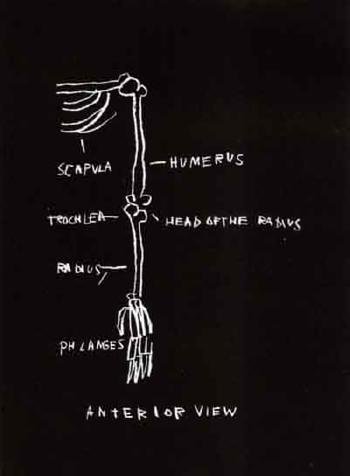 SCAPULA
HUMERUS
TROCHLEA
HEAD OF THE RADIUS
RADIUS
PHLANGES
ANTERIOR VIEW